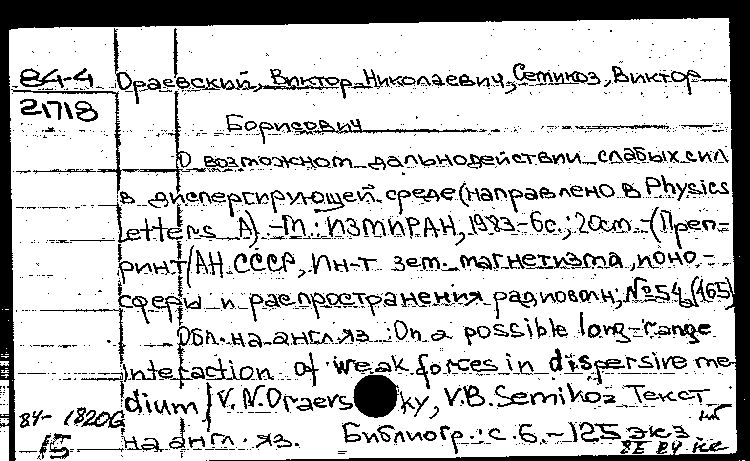 84-4
21718
Ораевский, Виктор Николаевич, Семикоз, Виктор
Борисович
О возможном дальнодействии слабых сил
в диспергирующей среде (направлено в Physics
Letters A). -М.: ИЗМИРАН, 1983-6с.; 20см. -(Преп-
ринт/АН СССР, Ин-т зем. магнетизма, ионо-
сферы и распространения радиоволн; №54(465)
Обл. на англ. яз.: On a possible long-range
interaction of weak forces in dispersive me
dium / V.N.Oraevs ky, V.B. Semikoz Текст
на англ. яз. Библиогр.: с. 6. - 125 экз.
84- 18206
15